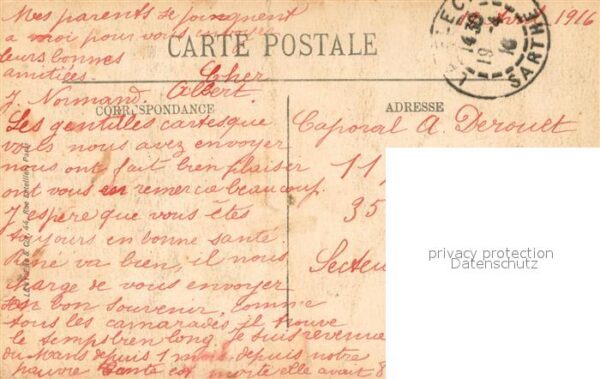 Mes parents se joingnent
a moi pour vous envoyer
leurs bonnes
amitiées.
J. Normand.
1916
LA FLECHE
14 30
19 -4
16
SARTHE
CARTE POSTALE
CORRESPONDANCE
ADRESSE
Cher
Albert
Les gentilles cartes que
vous nous avez envoyer
nous ont fait bien plaisir
ont vous en remercie beaucoup.
J'espère que vous êtes
toujours en bonne santé
va bien, il nous
charge de vous envoyer
un bon souvenir, comme
tous les camarades, il trouve
le temps bien long. Je suis revenue
du Mans depuis 1 mois depuis notre
pauvre tante est morte elle avait 8
Caporal A. Derouet
11
35
Secteu
privacy protection
Datenschutz